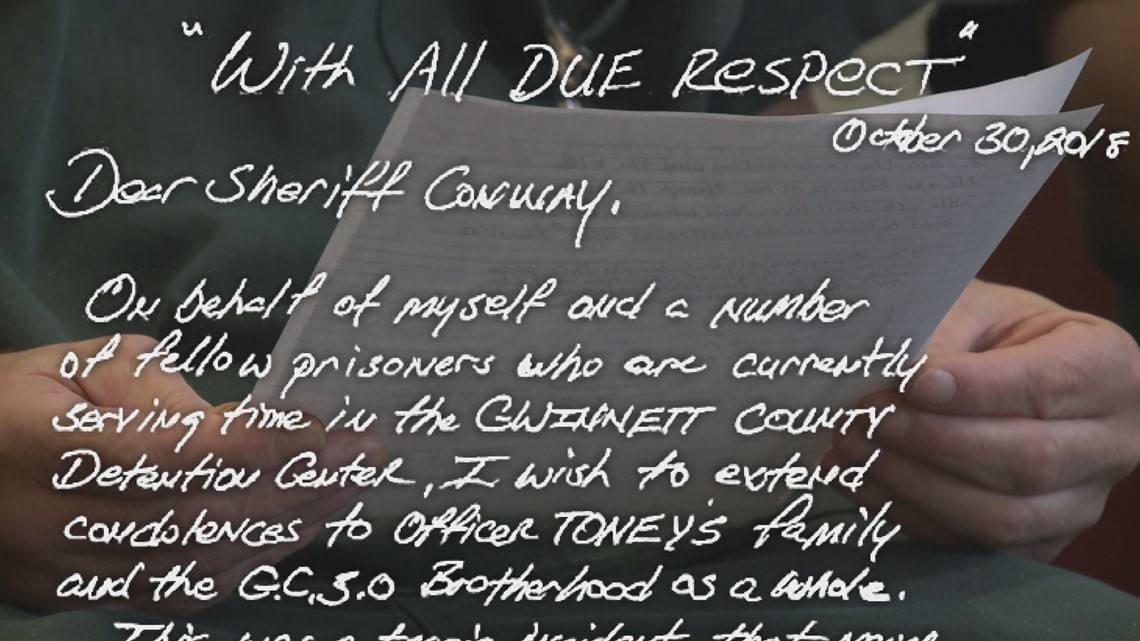 "With All DUE RESPECT"
October 30, 2018
Dear Sheriff CONWAY.
On behalf of myself and a number
of fellow prisoners who are currently
serving time in the GWINNETT COUNTY
Detention Center, I wish to extend
condolences to Officer TONEY'S family
and the G.C.S.O Brotherhood as a whole.
This was a tragic incident that never